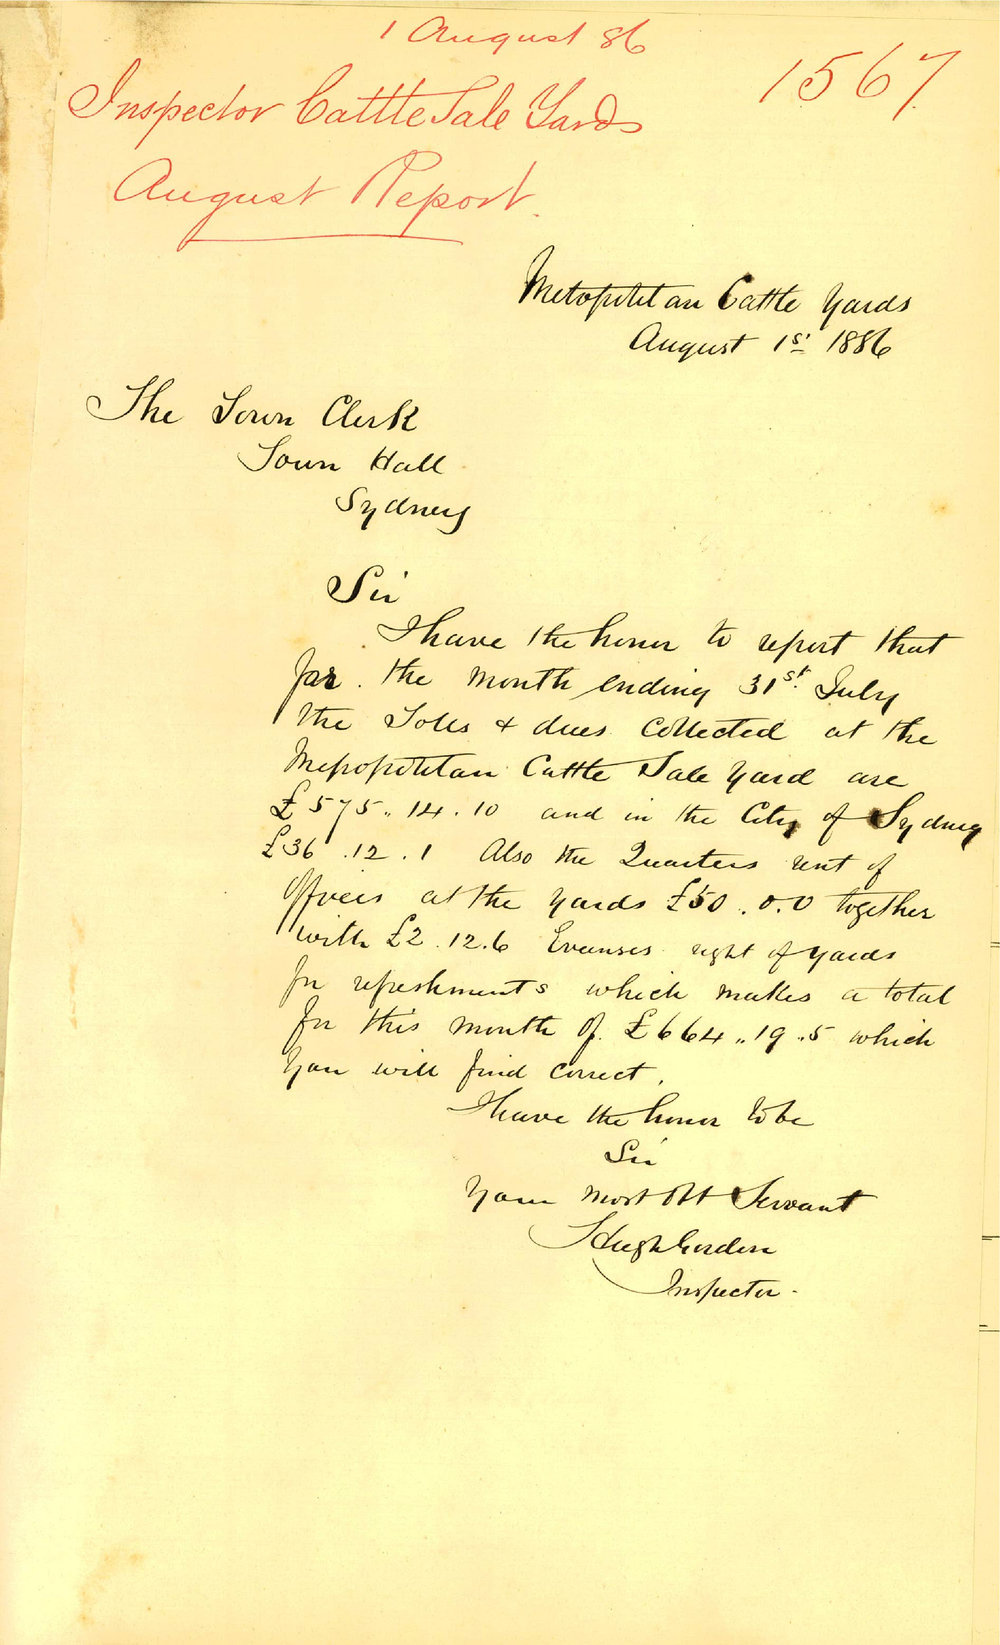 1 August 86
1567.
Inspector Cattle Sale Yards
August Report.
Metopolitan Cattle Yards
August 1st 1886
The Town Clerk
Town Hall
Sydney
Sir
I have the honor to report that
for the month ending 31st July
the Tolls & dues Collected at the
Mepropolitan Cattle Sale Yard are
£575..14.10 and in the City of Sydney
£36.12.1 Also the Quarters rent of
Offices at the Yards £50.0.0 together
with £2.12.6 right of Yards
for refreshments which makes a total
for this month of £664..19..5 which
You will find correct.
I have the honor to be
Sir
Your most Obt Servant
Hugh Gordon
Inspector.